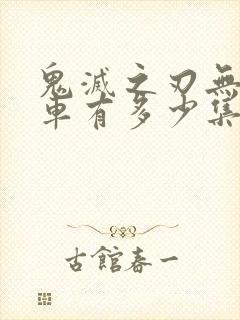 鬼滅之刃無
車有多少集
古館春一